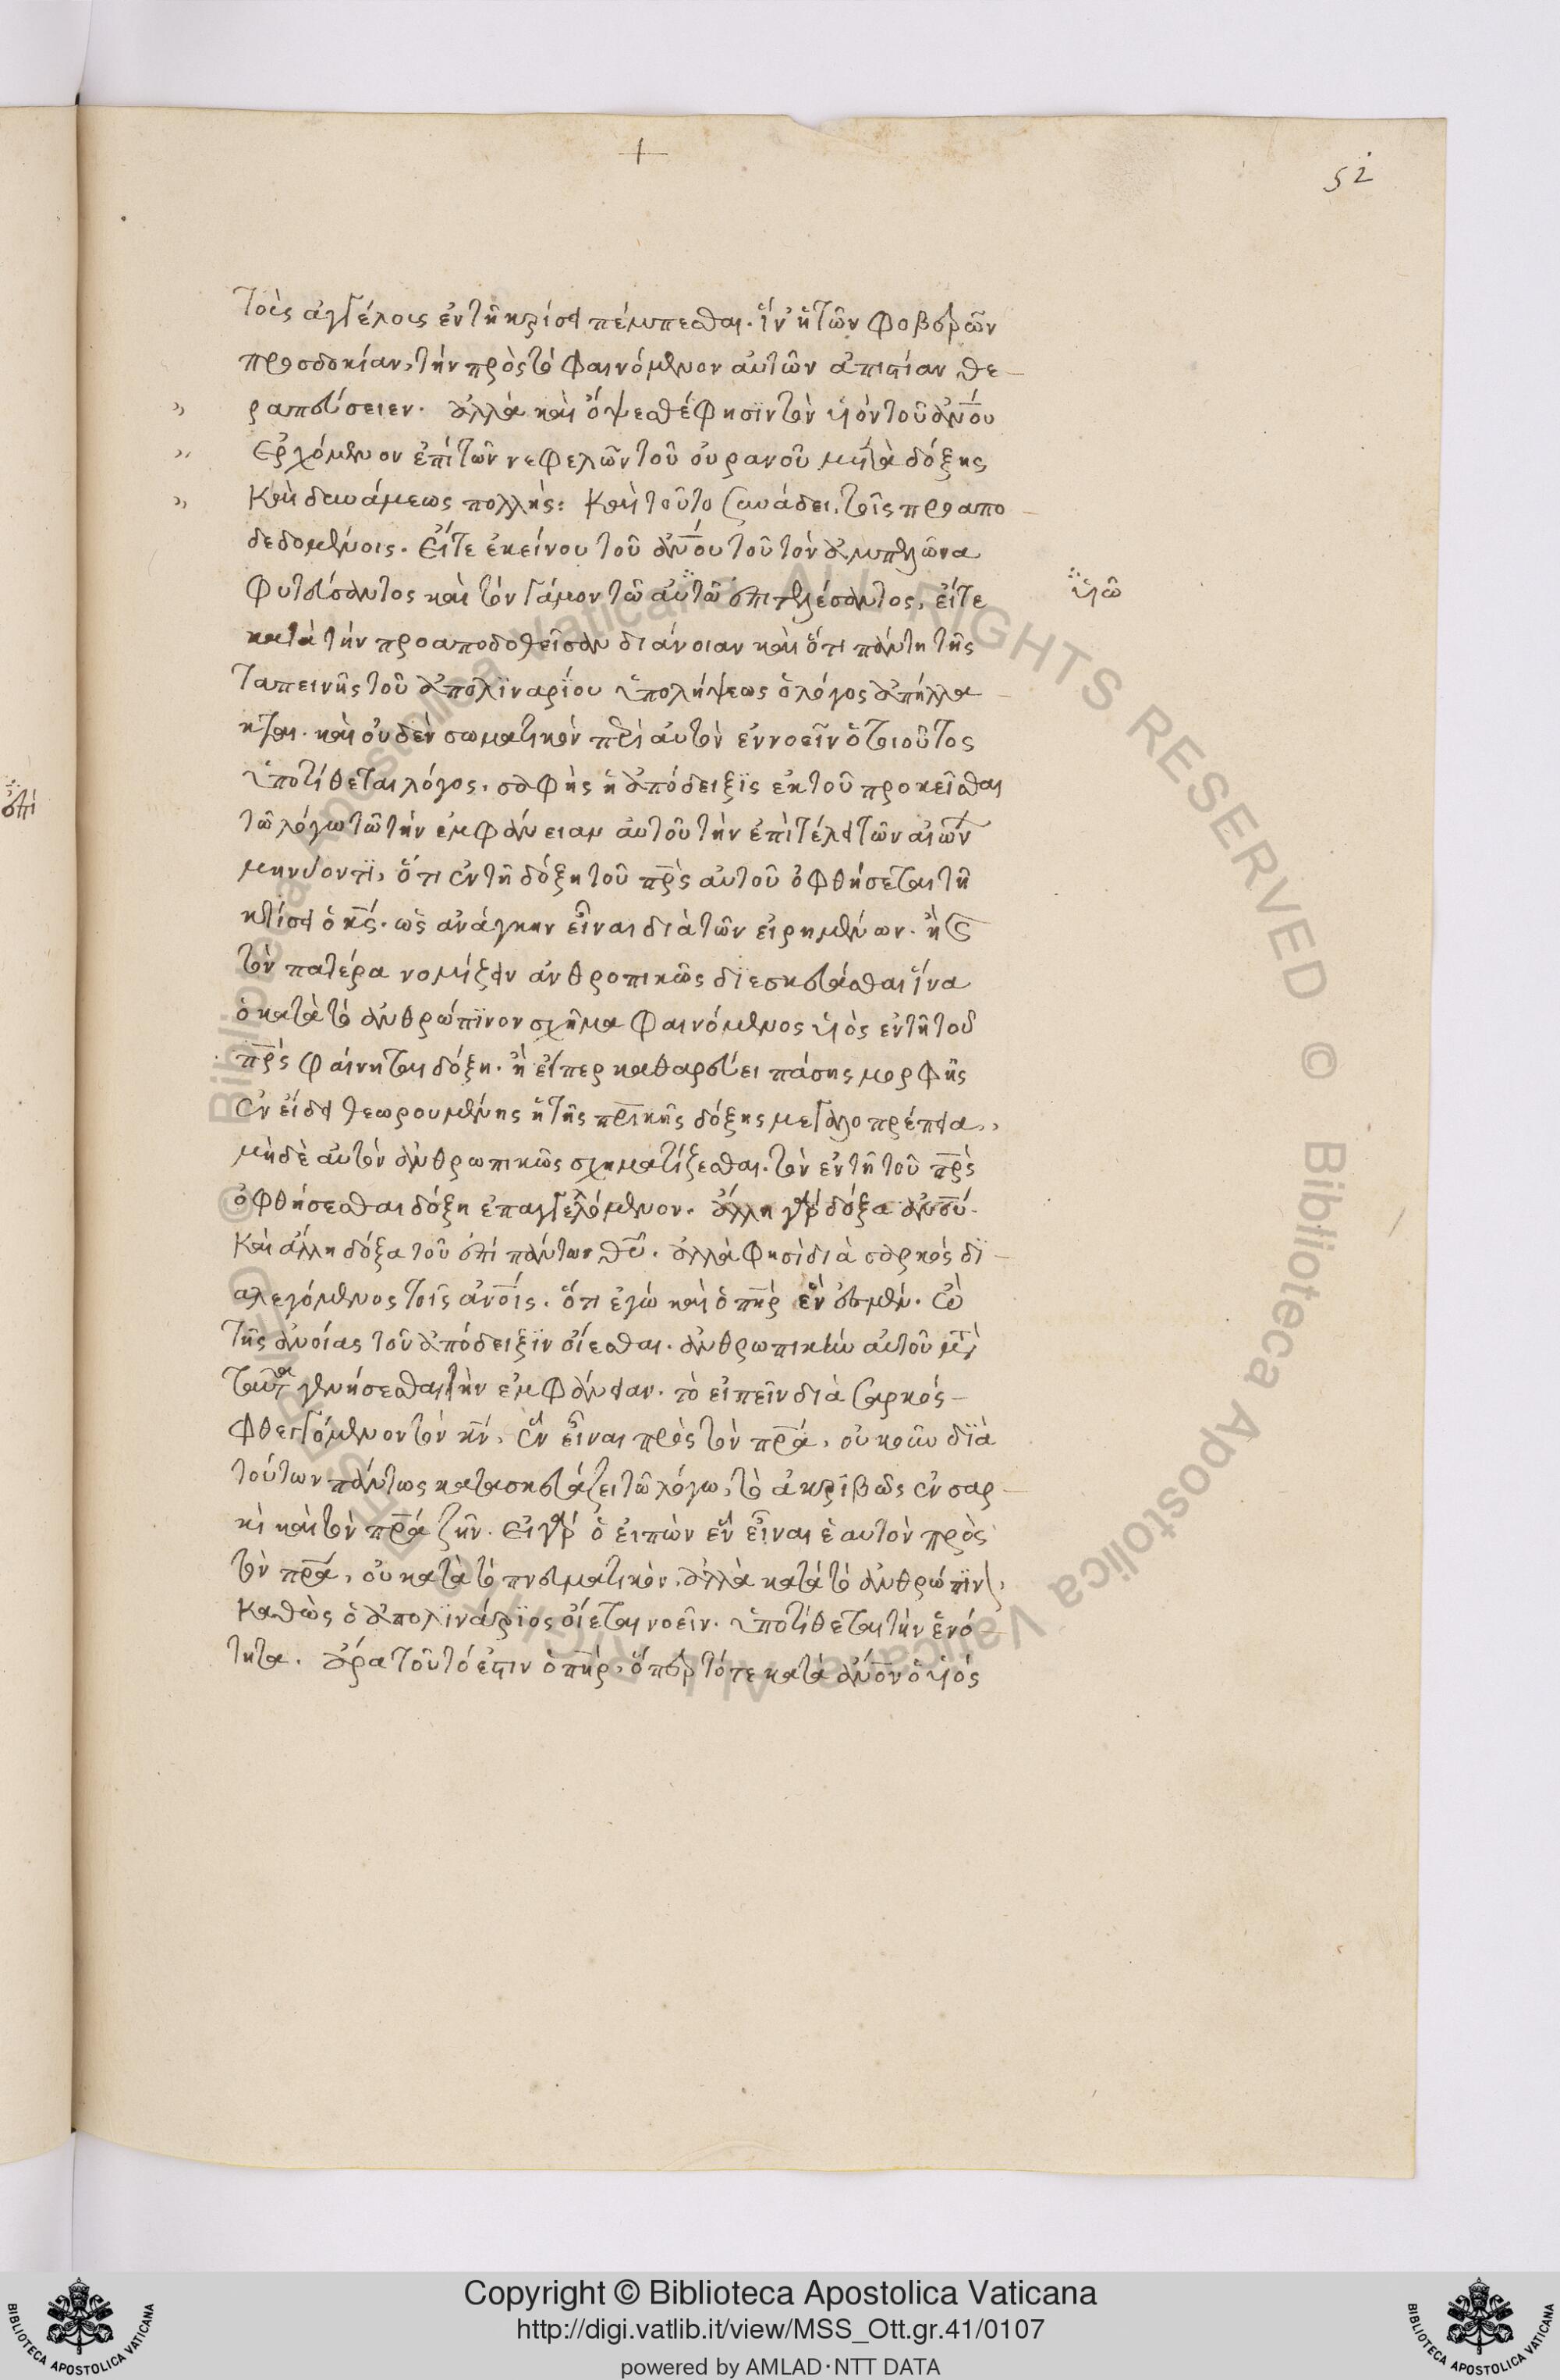 +
52
τοῖς ἀγγέλοις ἐν τῇ κρίσει πέμπεσθαι. ἵν' ἡ τῶν φοβερῶν
προσδοκίαν, τὴν πρὸς τὸ φαινόμενον αὐτῶν ἀπιστίαν θε-
ραπεύσειεν. ἀλλὰ καὶ ὄψεσθέ φησϊν τὸν υἱὸν τοῦ ἀνου
ἐρχόμενον ἐπὶ τῶν νεφελῶν τοῦ οὐρανοῦ μετὰ δόξης
καὶ δυνάμεως πολλῆς: καὶ τοῦτο συνάδει τοῖς προαπο-
δεδομένοις. εἴτε ἐκείνου τοῦ ἀνου τοῦ τὸν ἀμπελῶνα
φυτεύσαντος καὶ τὸν γάμον τῶ αὐτῶ ἐπιτελέσαντος, εἴτε
υἱῶ
κατὰ τὴν προαποδοθεῖσαν διάνοιαν καὶ ὅτι πάντη τῆς
ταπεινῆς τοῦ ἀπολϊναρϊου ὑπολήψεως ὁ λόγος ἀπήλλα-
κται. καὶ οὐδὲν σωματικὸν περὶ αὐτὸν ἐννοεῖν ὁ τοιοῦτος
ὑποτίθεται λόγος. σαφὴς ἡ ἀπόδειξϊς ἐκ τοῦ προκεῖσθαι
ἐπὶ
τῶ λόγω τῶ τὴν ἐμφάνειαν αὐτοῦ τὴν ἐπὶ τέλει τῶν αἰών
μηνύοντϊ, ὅτι ἐν τῆ δόξη τοῦ πρς αὐτοῦ ὀφθήσεται τῆ
κτίσει ὁ κς. ὡς ἀνάγκην εἶναι διὰ τῶν εἰρημένων. ἢ καὶ
τὸν πατέρα νομίζειν ἀνθροπικῶς διεσκευάσθαι ἵνα
ὁ κατὰ τὸ ἀνθρώπϊνον σχῆμα φαινόμενος υἱὸς ἐν τῆ τοῦ
πρς φαίνηται δόξη. ἢ εἴπερ καθαρεύει πάσης μορφῆς
ἐν εἴδει θεωρουμένης ἡ τῆς πρικῆς δόξης μεγαλοπρέπεια,
μὴδὲ αὐτὸν ἀνθρωπικῶς σχηματίζεσθαι. τὸν ἐν τῆ τοῦ πρς
ὀφθήσεσθαι δόξη ἐπαγγελόμενον. ἄλλη γὰρ δόξα ἀνου.
καὶ ἄλλη δόξα τοῦ ἐπὶ πάντων θυ. ἀλλὰ φησὶ διὰ σαρκὸς δϊ-
αλεγόμενος τοῖς ἀνοις. ὅτι ἐγώ καὶ ὁ πηρ ἕν ἐσμεν. ὢ
τῆς ἀνοίας τοῦ ἀπόδειξϊν οἴεσθαι. ἀνθρωπικὴν αὐτοῦ μετὰ
ταῦτα γενήσεσθαι τὴν ἐμφάνειαν. τὸ εἰπεῖν διὰ σαρκός-
φθεγγόμενον τὸν κν, ἓν εἶναι πρὸς τὸν πρα, οὐκοῦν δϊὰ
τούτων πάντως κατασκευάζει τῶ λόγω, τὸ ἀκρϊβῶς ἐν σαρ-
κὶ καὶ τὸν πρα ζῆν. εἰ γὰρ ὁ εἰπὼν ἓν εἶναι ἑαυτὸν πρὸς
τὸν πρα, οὐ κατὰ τὸ πνευματικὸν, ἀλλὰ κατὰ τὸ ἀνθρώπϊν,
καθὼς ὁ ἀπολϊνάρϊος οἴεται νοεῖν. ὑποτίθεται τὴν ἑνό-
τητα. ἄρα τοῦτό ἐστιν ὁ πηρ, ὅπερ τότε κατὰ ἀνον ὁ υἱός
Copyright © Biblioteca Apostolica Vaticana
http://digi.vatlib.it/view/MSS_Ott.gr.41/0107
powered by AMLAD·NTT DATA